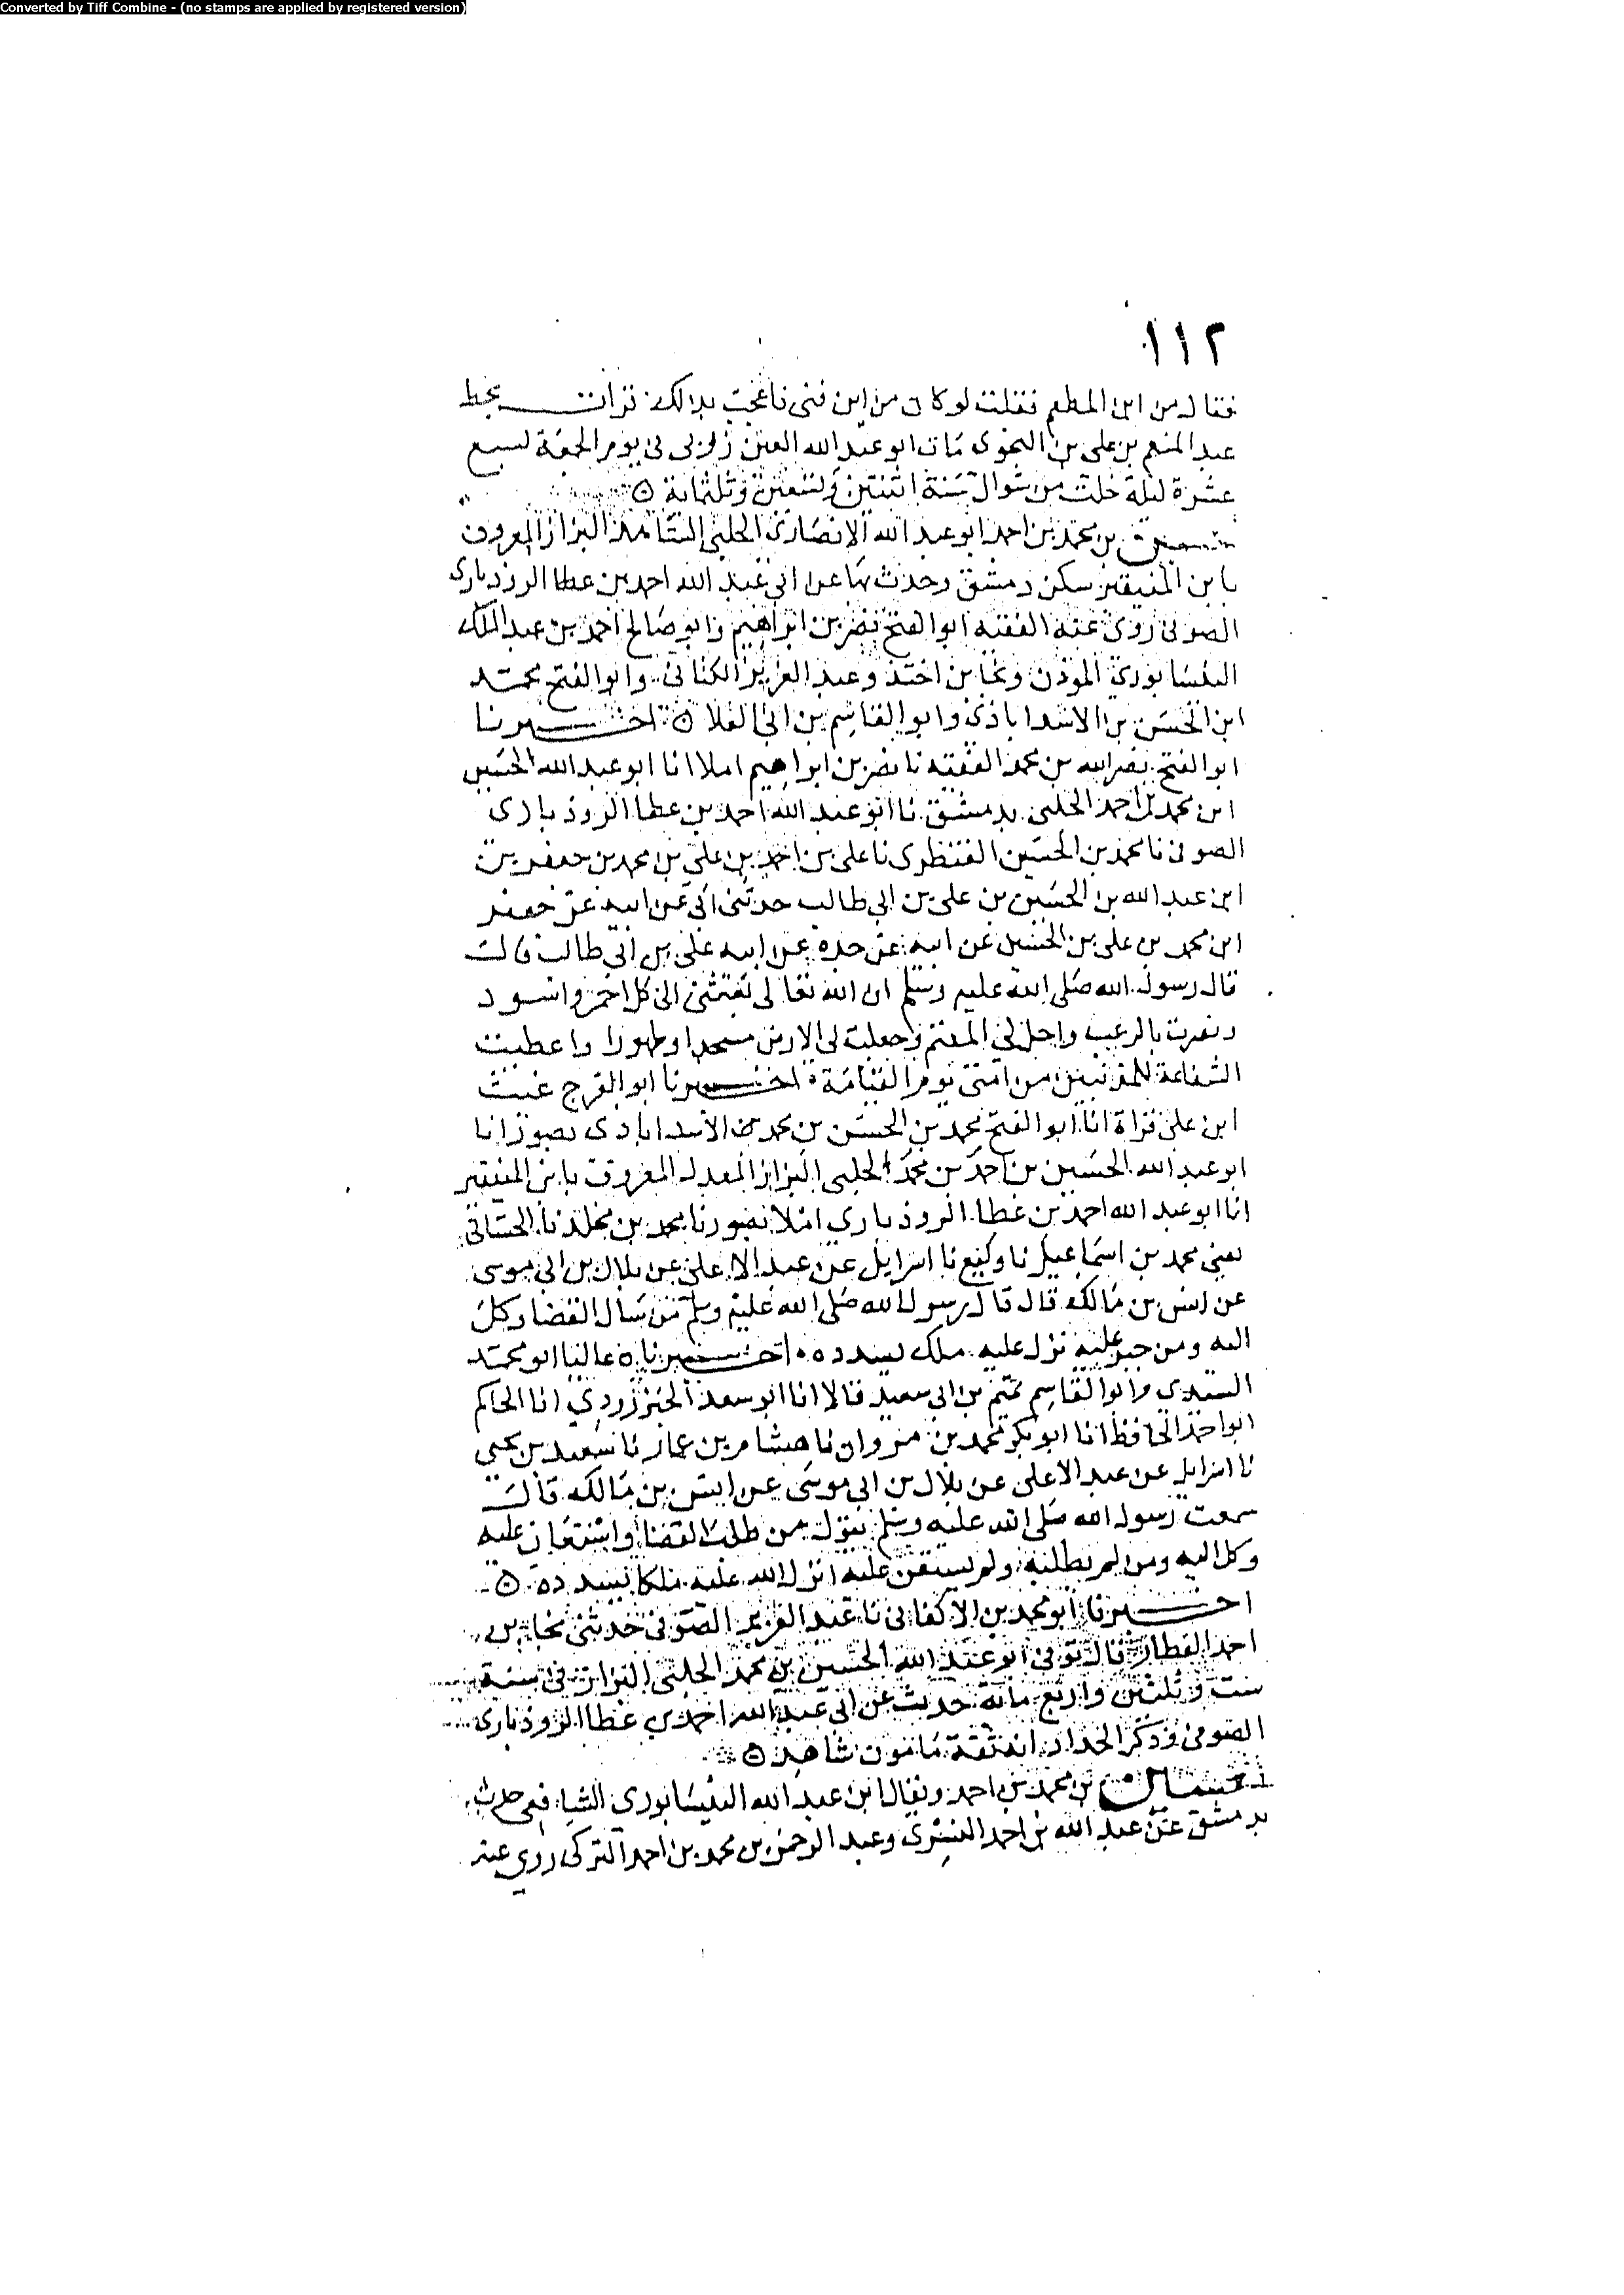 Converted by Tiff Combine - (no stamps are applied by registered version)
١١٢
فقال من اين المطعم فقلت لو كان من اين فنى فاعجب بذالك قرات بخط
عبد المنعم بن على بن النحوى مات ابو عبد الله العين زربى فى يوم الجمعة لسبع
عشرة ليلة خلت من شوال سنة اثنتين وتسعين وثلثماية
الحسين بن محمد بن احمد ابو عبد الله الانصارى الحلبى الشاهد البزاز المعروف
بابن المنيقير سكن دمشق وحدث بها عن ابى عبد الله احمد بن عطا الروذبارى
الصوفى روى عنه الفقيه ابو الفتح نصر بن ابراهيم وابو صالح احمد بن عبد الملك
النيسابورى الموذن ونجا بن احمد وعبد العزيز الكتانى وابو الفتح محمد
ابن الحسن بن الاسداباذى وابو القاسم بن ابى العلا اخبرنا
ابو الفتح نصر الله بن محمد الفقيه نا نصر بن ابراهيم املا انا ابو عبد الله الحسين
ابن محمد بن احمد الحلبى بدمشق نا ابو عبد الله احمد بن عطا الروذبارى
الصوفى نا محمد بن الحسين القنظرى نا على بن احمد بن على بن محمد بن جعفر بن
ابن عبد الله بن الحسين بن على بن ابى طالب حدثنى ابى عن ابيه عن جعفر
ابن محمد بن على بن الحسين عن ابيه عن جده عن ابيه على بن ابى طالب قال
قال رسول الله صلى الله عليه وسلم ان الله تعالى بعثنى الى كل احمر واسود
ونصرت بالرعب واحل لى المغنم وجعلت لى الارض مسجدا وطهورا واعطيت
الشفاعة للمذنبين من امتى يوم القيامة اخبرنا ابو الفرج غيث
ابن على قراة انا ابو الفتح محمد بن الحسن بن محمد الاسداباذى بصور انا
ابو عبد الله الحسين بن احمد بن محمد الحلبى البزاز المعدل المعروف بابن المنيقير
انا ابو عبد الله احمد بن عطا الروذبارى املا بصور نا محمد بن مخلد نا الحسانى
يعنى محمد بن اسماعيل نا وكيع نا اسرايل عن عبد الاعلى عن بلال بن ابى موسى
عن انس بن مالك قال قال رسول الله صلى الله عليه وسلم من سال القضا وكل
اليه ومن جبر عليه نزل عليه ملك يسدده اخبرناه عاليا ابو محمد
السيدى وابو القاسم تميم بن ابى سعيد قالا انا ابو سعد الجنزرودى انا الحاكم
ابو احمد الحافظ انا ابو بكر محمد بن مروان نا هشام بن عمار نا سعيد بن يحيى
نا اسرايل عن عبد الاعلى عن بلال بن ابى موسى عن انس بن مالك قال
سمعت رسول الله صلى الله عليه وسلم يقول من طلب القضا واستعان عليه
وكل اليه ومن لم يطلبه ولم يستعن عليه انزل الله عليه ملكا يسدده
اخبرنا ابو محمد بن الاكفانى نا عبد العزيز الصوفى حدثنى نجا بن
احمد العطار قال توفى ابو عبد الله الحسين بن محمد الحلبى البزاز فى سنة
ست وثلثين واربع ماية حدث عن ابى عبد الله احمد بن عطا الروذبارى
الصوفى وذكر الحداد انه ثقة مامون شاهد
الحسين بن محمد بن احمد ويقال ابن عبد الله النيسابورى الشافعى حدث
بدمشق عن عبد الله بن احمد النسوى وعبد الرحمن بن محمد بن احمد التركى روى عنه